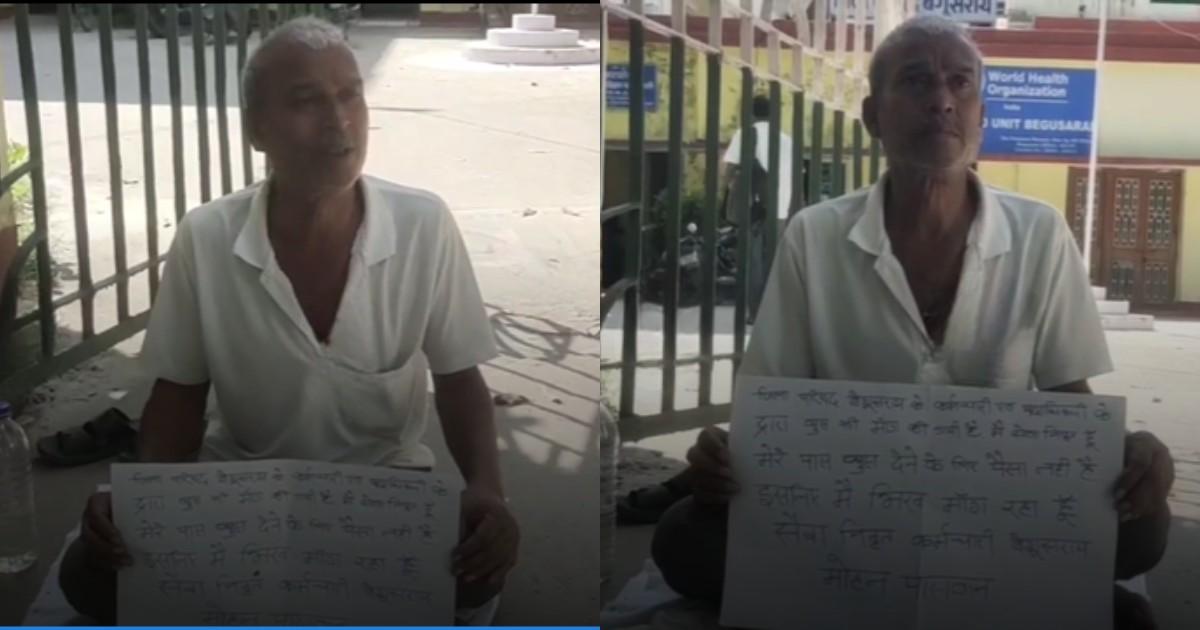 जिला परिषद बेगुसराय के कर्मचारी एवं पदाधिकारी के
द्वारा घुस की माँग की गयी है मैं
मेरे पास घुस देने के लिए पैसा नहीं है
इसलिए मैं भिख माँग रहा हूँ
सेवा निवृत कर्मचारी बेगुसराय
मोहन पासवान
बेगूसराय
World Health
Organization
India
UNIT BEGUSARAI
जिला परिषद बेगुसराय के कर्मचारी एवं पदाधिकारी के
द्वारा घुस की माँग की गयी है मैं
मेरे पास घुस देने के लिए पैसा नहीं है
इसलिए मैं भिख माँग रहा हूँ
सेवा निवृत कर्मचारी बेगुसराय
मोहन पासवान